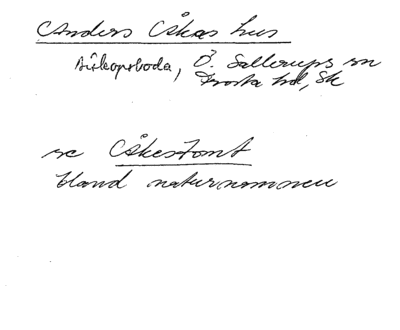 Anders Åkas hus
Biskopsboda, Ö. Sallerups sn
Frosta hd, Sk
se Åkestomt
bland naturnamnen